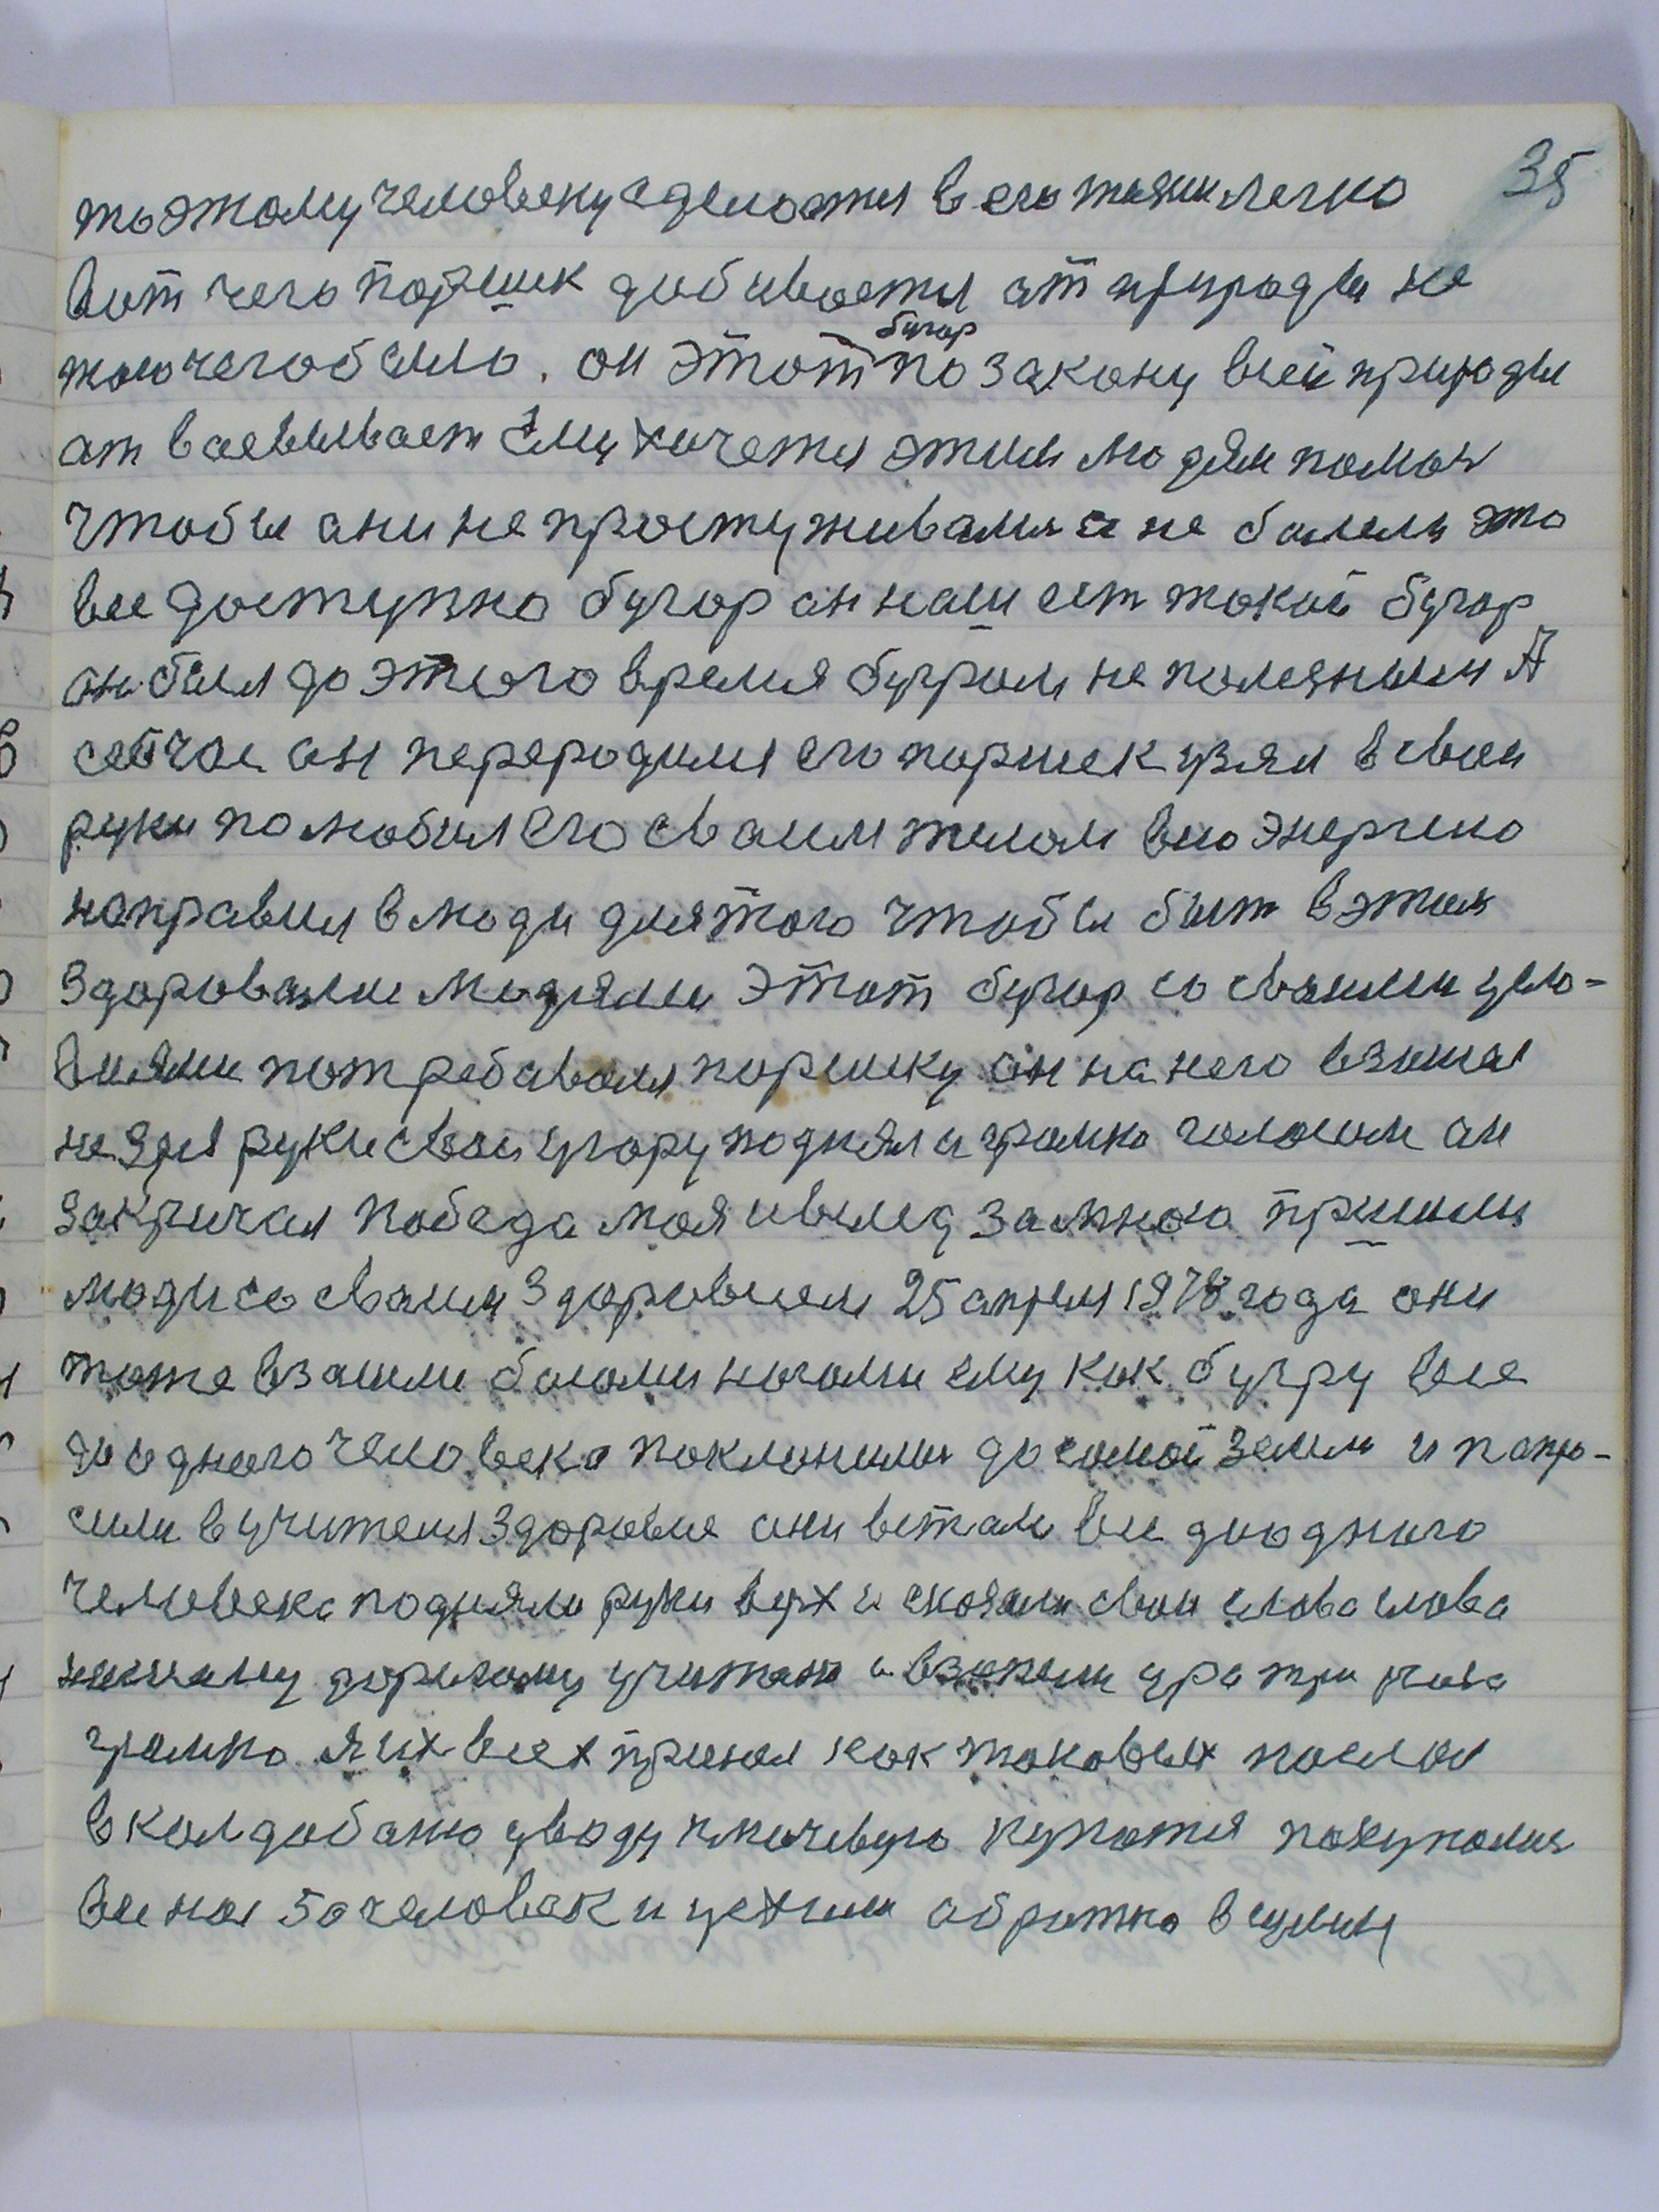 35
то этому человеку сделается в его жизни легко
вот чего паршек добивается от природы не
того чего было. он этот бугор по закону всей природы
атваевывает ему хочется этим людям помоч
чтобы ани не простуживалися и не балели это
все доступно бугор он наш ест такой бугор
он был до этого время бугром не полезным А
сейчас он переродился его паршек узял в свои
руки полюбил его сваим телом всю энергию
направил в люди для того чтобы быт в этих
здоровыми людями этот бугор со своими усло-
виями потребовался паршеку он на него взошел
не зря руки свои угору поднял и громко голосом он
закричал победа моя и вслед за мною пришли
люди со сваим здоровием 25 апреля 1978 года они
тоже взашли босыми ногами ему как бугру все
до одного человека поклонилис до самой земли и папро-
сили в учителя здоровие они встали все до одного
человека подняли руки верх и сказали свои слова слава
нашему дорогому учителю и взопили ура три раза
громко я их всех принял как таковых послал
в колдобаню у воду ключевую купатся покупалися
все нас 50 человек и уехали обратно в сумы